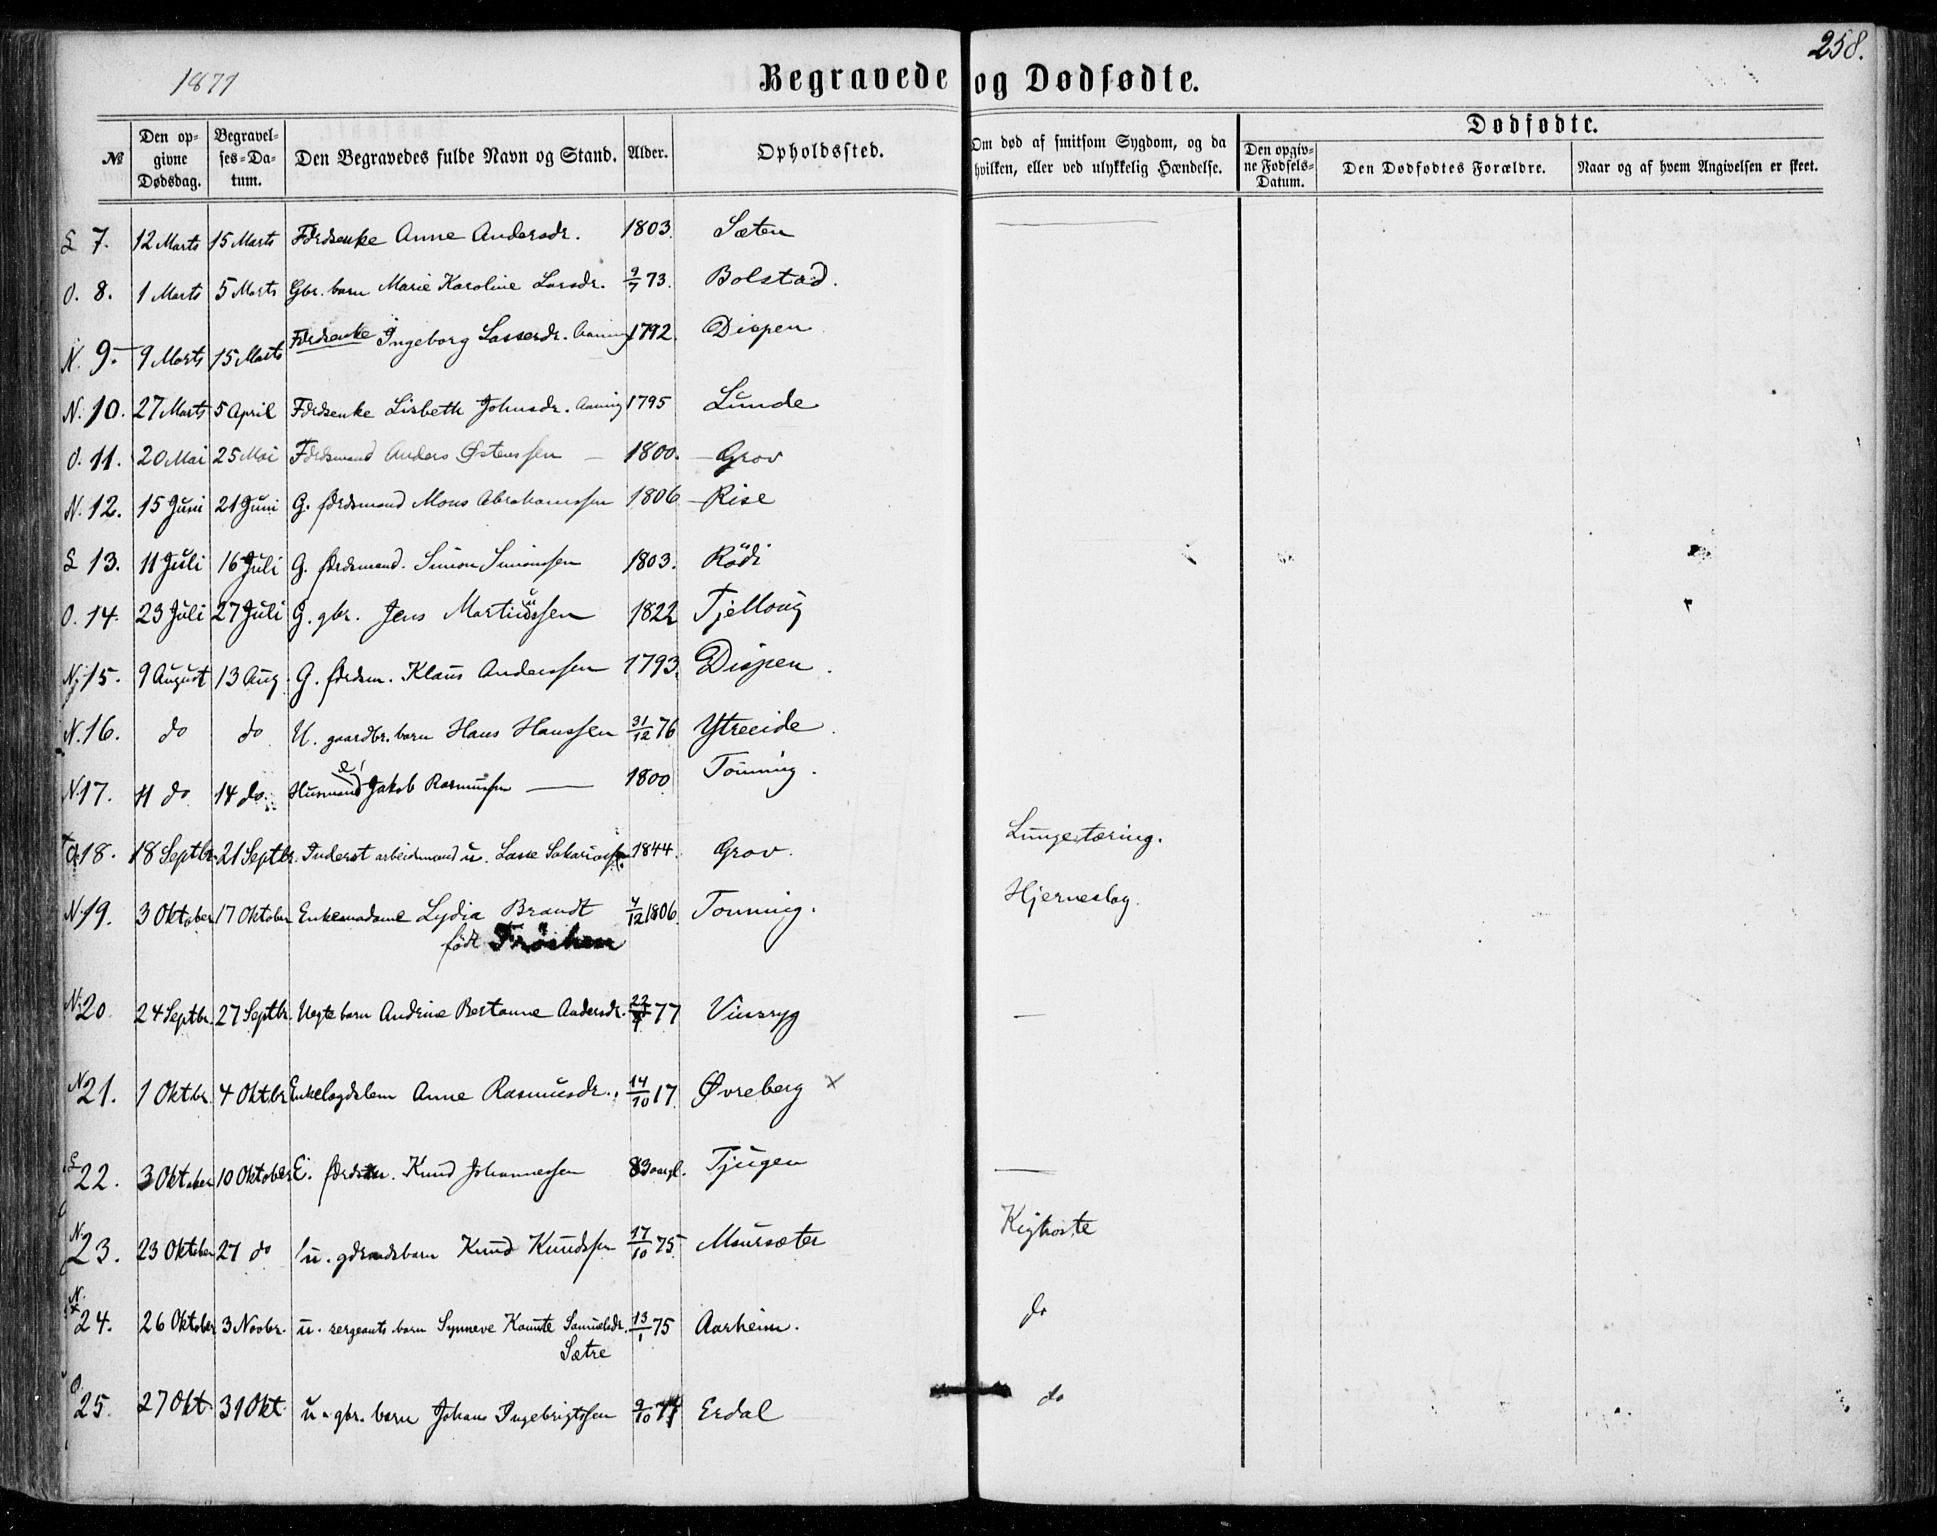 258.
1877
Begravede og Dødfødte.
№ Den opgivne Dødsdag. Begravelses-Datum. Den Begravedes fulde Navn og Stand. Alder. Opholdssted. Om død af smitsom Sygdom, og da hvilken, eller ved ulykkelig Hændelse. Dødfødte. Den opgivne Fødsels-Datum. Den Dødfødtes Forældre. Naar og af hvem Angivelsen er skeet.
7. 12 Marts 15 Marts Fdrdsenke Anne Andersdr. 1803. Sæten
O. 8. 1 Marts 5 Marts Gbr. barn Marie Karoline Larsdr. 9/7 73. Bolstad.
N. 9. 9 Marts 15 Marts Fdrdsenke Ingeborg Lassesdr. 1792. Dispen
N. 10. 27 Marts 5 April Fdrdsenke Lisbeth Johnsdr. 1795 Lunde
O. 11. 20 Mai 25 Mai Fdrdsmand Anders Østenssen — 1800. Grov
N. 12. 15 Juni 21 Juni G. fdrdsmand Mons Abrahamssen 1806 Rise
13. 11 Juli 16 Juli G. fdrdsmand. Simon Simonssen 1803. Rödi
O. 14. 23 Juli 27 Juli G. gbr. Jens Martinussen 1822 Tjellaug
N. 15. 9 August 13 Aug. G. fdrdsm. Klaus Anderssen 1793. Dispen
N. 16. do do U. gaardbr. barn Hans Hanssen 31/12 76 Ytreeide
N 17. 11 do 14 do Husmand Jakob Rasmussen — 1800 Tonning.
18. 18 Septbr. 21 Septbr. Inderst arbeidsmand u. Lasse 1844. Grov. Lungetæring.
N 19. 3 Oktober 17 Oktober Enkemadame Lydia Brandt 4/12 1806. Tonning. Hjerneslag.
født Fröchen
N. 20 24 Septbr. 27 Septbr. Uegte barn Andrine Bertonne Andersdr. 77 Vinsryg —
N 21. 1 Oktbr. 4 Oktbr Enkelægdslem Anne Rasmusdr. 14/10 17 Øvreberg x
22. 3 Oktober 10 Oktober E. fdrdsm. Knud Johannessen 83 aargl. Tjugen —
N. 23. 23 Oktober 27 do u. gdrmdsbarn Knud Knudssen 17/10 75 Maursæter Kighoste
N. x 24. 26 Oktober 3 Novbr. u. sergeants barn Synneve Kamte Samuelsdr. 13/1 75 Aarheim. do
Sætre
O 25. 27 Okt. 31 Okt. u. gbr. barn Johans Ingebrigtssen 9/10 Erdal do